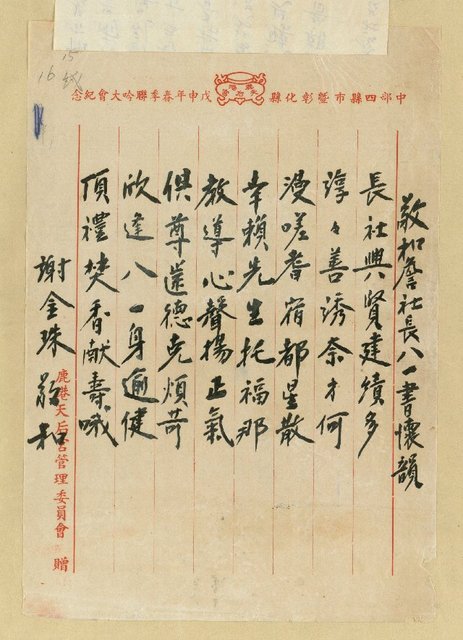 中部四縣市暨彰化縣 戊申年春季聯吟大會紀念
敬和詹社長八一書懷韻
長社興賢建績多
諄々善誘奈才何
漫嗟耆宿都星散
幸賴先生托福那
教導心聲揚正氣
俱尊蓍德免煩苛
欣逢八一身逾健
頂禮焚香献壽哦
謝金珠敬和
鹿港天后宮管理委員會 贈
15
16